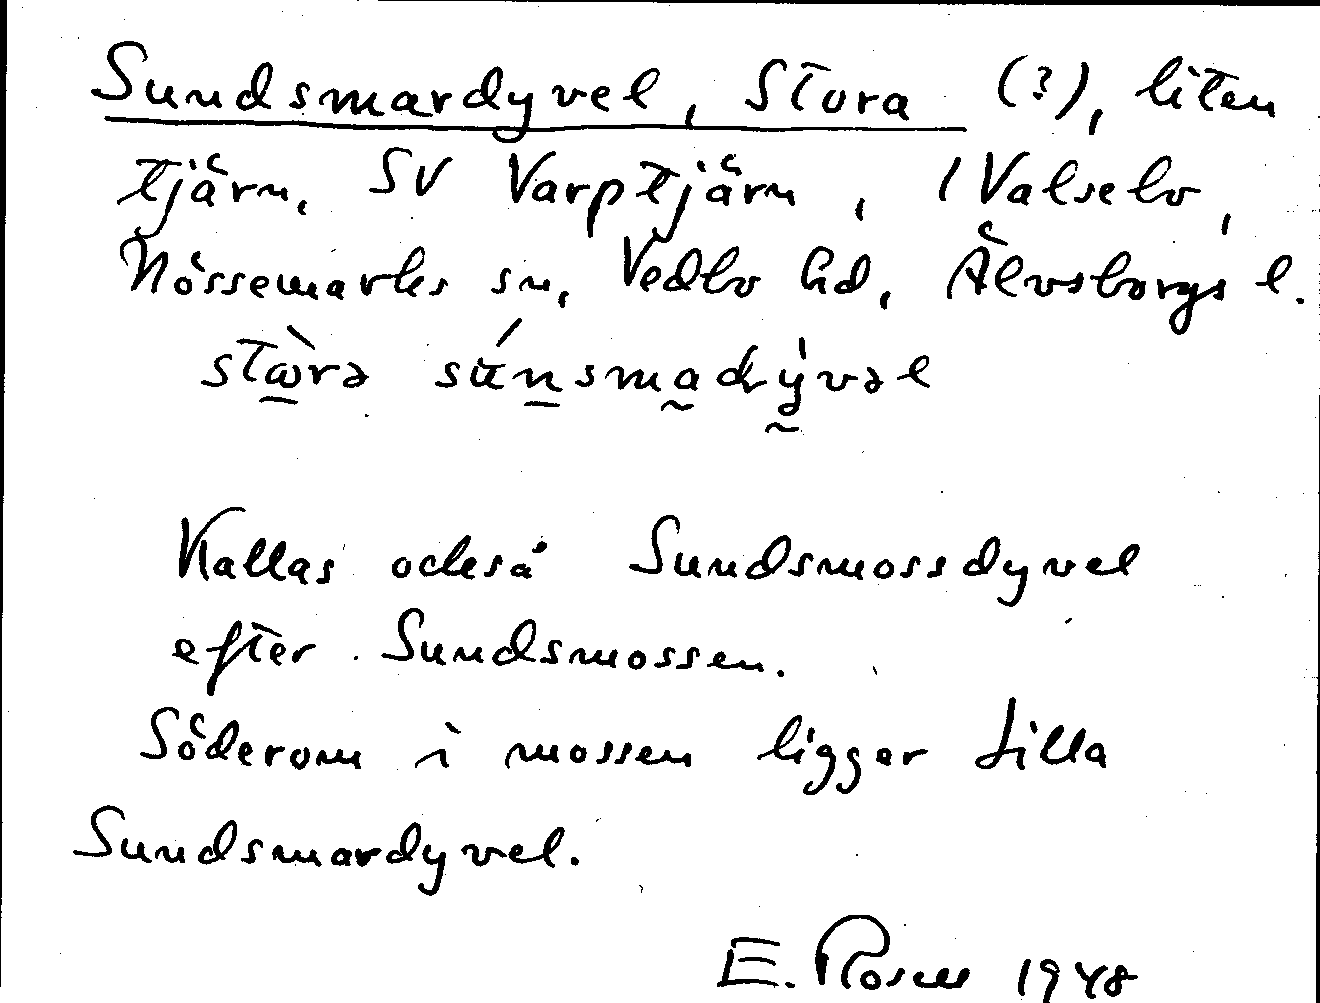 Sundsmardyvel, Stora (?), liten
tjärn, SV Varptjärn, 1 Valsebo,
Nössemarks sn, Vedbo hd, Älvsborgs l.
Kallas också Sundsmossdyvel
efter Sundsmossen.
Söderom i mossen ligger Lilla
Sundsmardyvel.
E. Rosell 1948